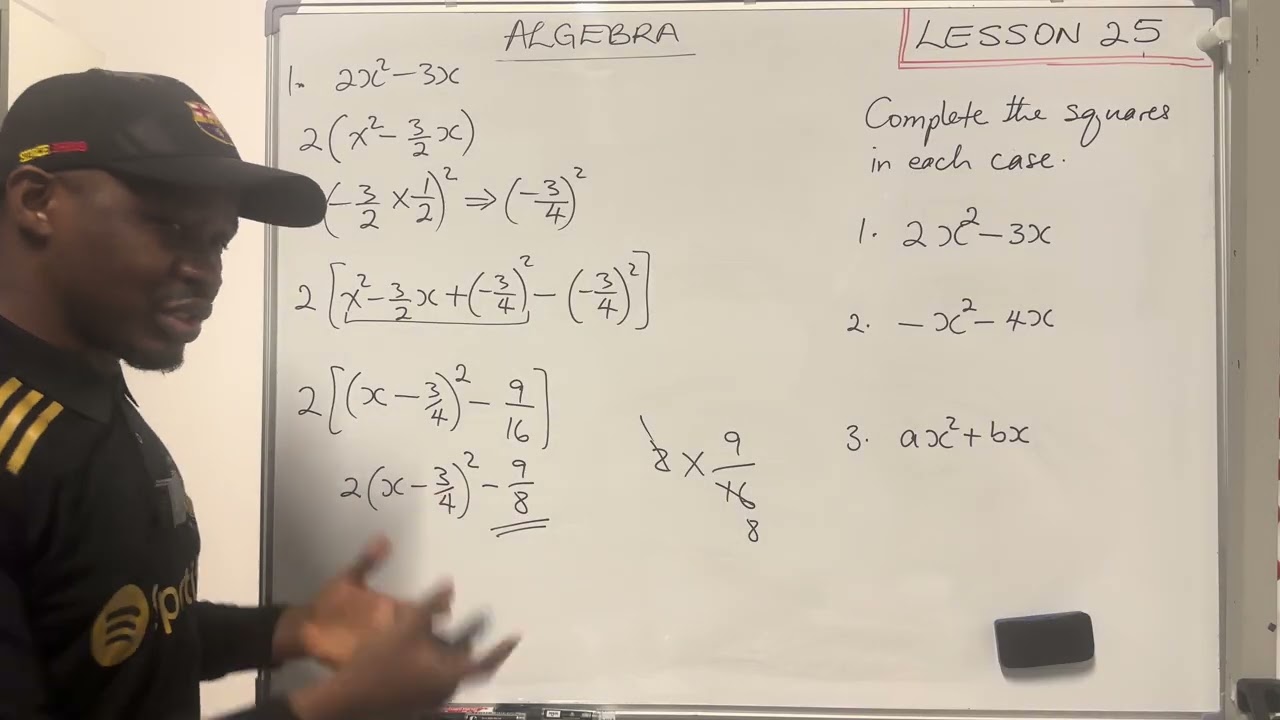 ALGEBRA
LESSON 25
1. 2x² - 3x
2(x² - 3/2 x)
(-3/2 × 1/2)² ⇒ (-3/4)²
2[x² - 3/2 x + (-3/4)² - (-3/4)²]
2[(x - 3/4)² - 9/16]
2(x - 3/4)² - 9/8
2 × 9/16
8
Complete the squares
in each case.
1. 2x² - 3x
2. -x² - 4x
3. ax² + bx